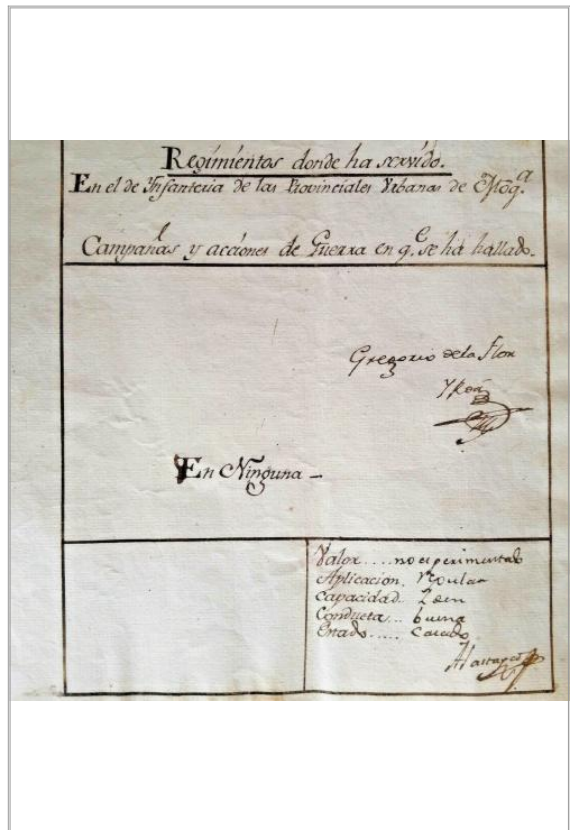 Regimientos donde ha servido.
En el de Ynfanteria de las Provinciales Urbanas de Moq.a
Campañas y acciones de Guerra en q.e se há hallado.
Gregorio de la Flor
En Ninguna
Valor.... no experimentado
Aplicacion. Regular
Capacidad.. Idem
Conducta... buena
Estado..... Casado